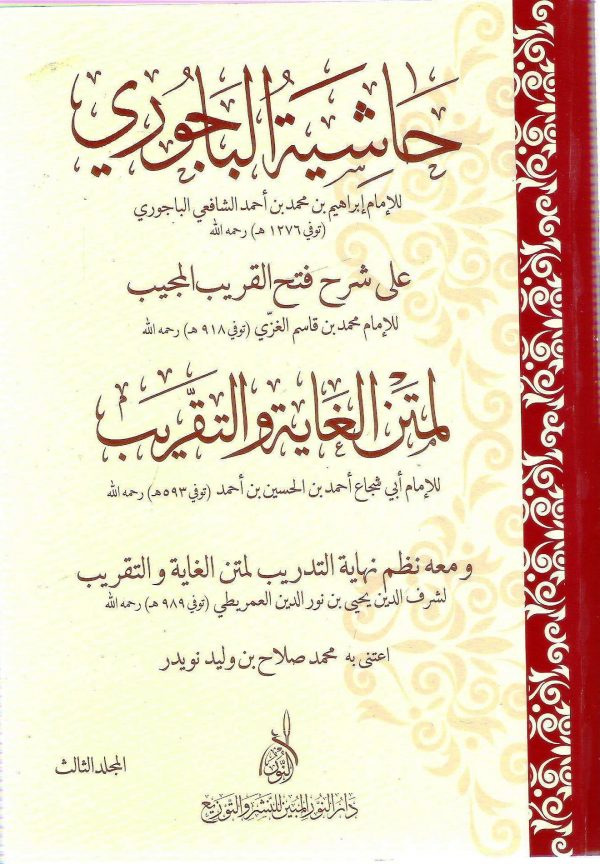 حَاشِيَةُ البَاجُورِي
للإمام إبراهيم بن محمد بن أحمد الشافعي الباجوري
(توفي ١٢٧٦ هـ) رحمه الله
على شرح فتح القريب المجيب
للإمام محمد بن قاسم الغزّي (توفي ٩١٨ هـ) رحمه الله
لمتن الغاية والتقريب
للإمام أبي شجاع أحمد بن الحسين بن أحمد (توفي ٥٩٣هـ) رحمه الله
ومعه نظم نهاية التدريب لمتن الغاية والتقريب
لشرف الدين يحيى بن نور الدين العمريطي (توفي ٩٨٩ هـ) رحمه الله
اعتنى به محمد صلاح بن وليد نويدر
المجلد الثالث
النور
دار النور المبين للنشر والتوزيع